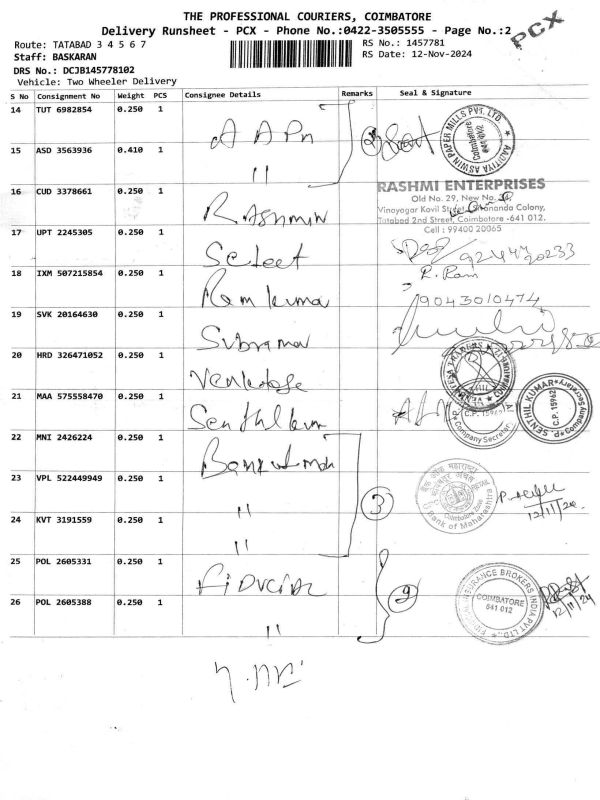 THE PROFESSIONAL COURIERS, COIMBATORE
Delivery Runsheet - PCX - Phone No.:0422-3505555 - Page No.:2
PCX
Route: TATABAD 3 4 5 6 7
RS No.: 1457781
Staff: BASKARAN
RS Date: 12-Nov-2024
DRS No.: DCJB145778102
Vehicle: Two Wheeler Delivery
S No Consignment No Weight PCS Consignee Details Remarks Seal & Signature
14 TUT 6982854 0.250 1
AADITYA ASWIN PAPER MILLS PVT. LTD.
Coimbatore 641 012
15 ASD 3563936 0.410 1 "
16 CUD 3378661 0.250 1
RASHMI ENTERPRISES
Old No. 29, New No.
Vinayagar Kovil Street, Colony,
Tatabad 2nd Street, Coimbatore -641 012.
Cell : 99400 20065
17 UPT 2245305 0.250 1 Select
18 IXM 507215854 0.250 1 Ram kumar
R. Ram
9043010474
19 SVK 20164630 0.250 1 Subraman
20 HRD 326471052 0.250 1 Venkatesh
21 MAA 575558470 0.250 1 Senthil kum
Company Secretary
SENTHIL KUMAR P.S.
C.P. 15962
Company Secretary
22 MNI 2426224 0.250 1 Bank of mah
23 VPL 522449949 0.250 1 " 3
Bank of Maharashtra
12/11/24
24 KVT 3191559 0.250 1 "
25 POL 2605331 0.250 1 Fiducial 2
FIDUCIAL INSURANCE BROKERS INDIA PVT LTD.
COIMBATORE
641 012
12/11/24
26 POL 2605388 0.250 1 "